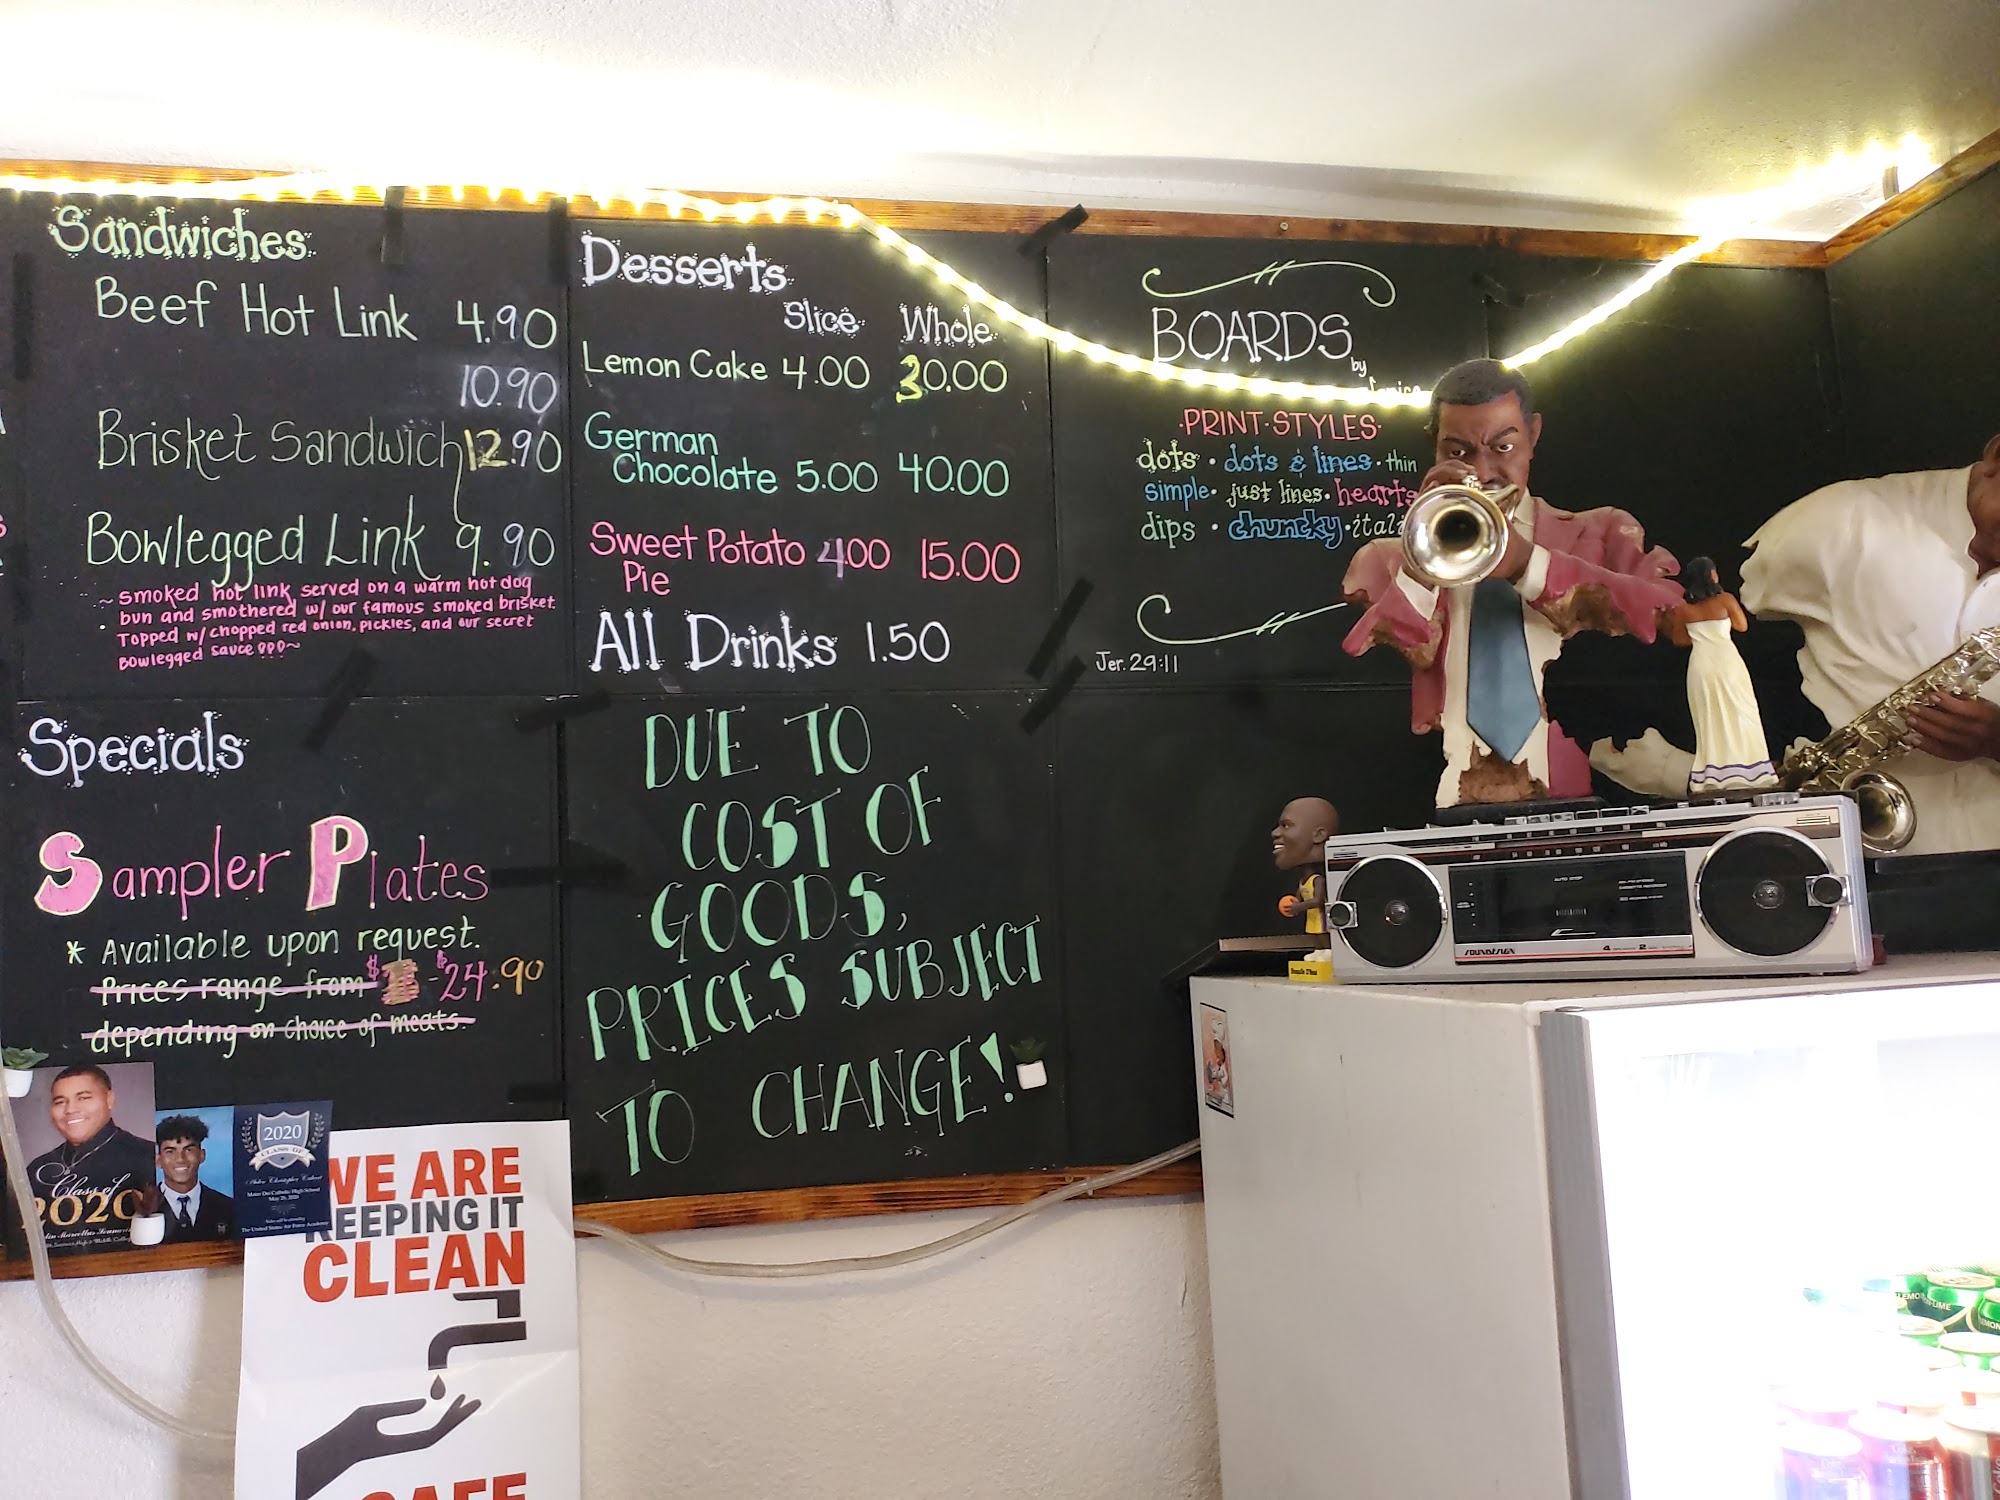 Sandwiches
Beef Hot Link 4.90
10.90
Brisket Sandwich 12.90
Bowlegged Link 9.90
~ smoked hot link served on a warm hot dog
bun and smothered w/ our famous smoked brisket.
Topped w/ chopped red onion, pickles, and our secret
Bowlegged sauce !!!~
Specials
Sampler Plates
* Available upon request.
Prices range from $ - $24.90
depending on choice of meats.
Desserts
Slice Whole
Lemon Cake 4.00 30.00
German
Chocolate 5.00 40.00
Sweet Potato 4.00 15.00
Pie
All Drinks 1.50
DUE TO
COST OF
GOODS,
PRICES SUBJECT
TO CHANGE!
BOARDS
by
·PRINT·STYLES·
dots · dots & lines · thin
simple · just lines · hearts
dips · chuncky ·
Jer. 29:11
Class of
2020
2020
CLASS OF
Mater Dei Catholic High School
The United States Air Force Academy
WE ARE
KEEPING IT
CLEAN
SAFE
AUTO STOP
SOUNDESIGN
Shaquille O'Neal
LEMON